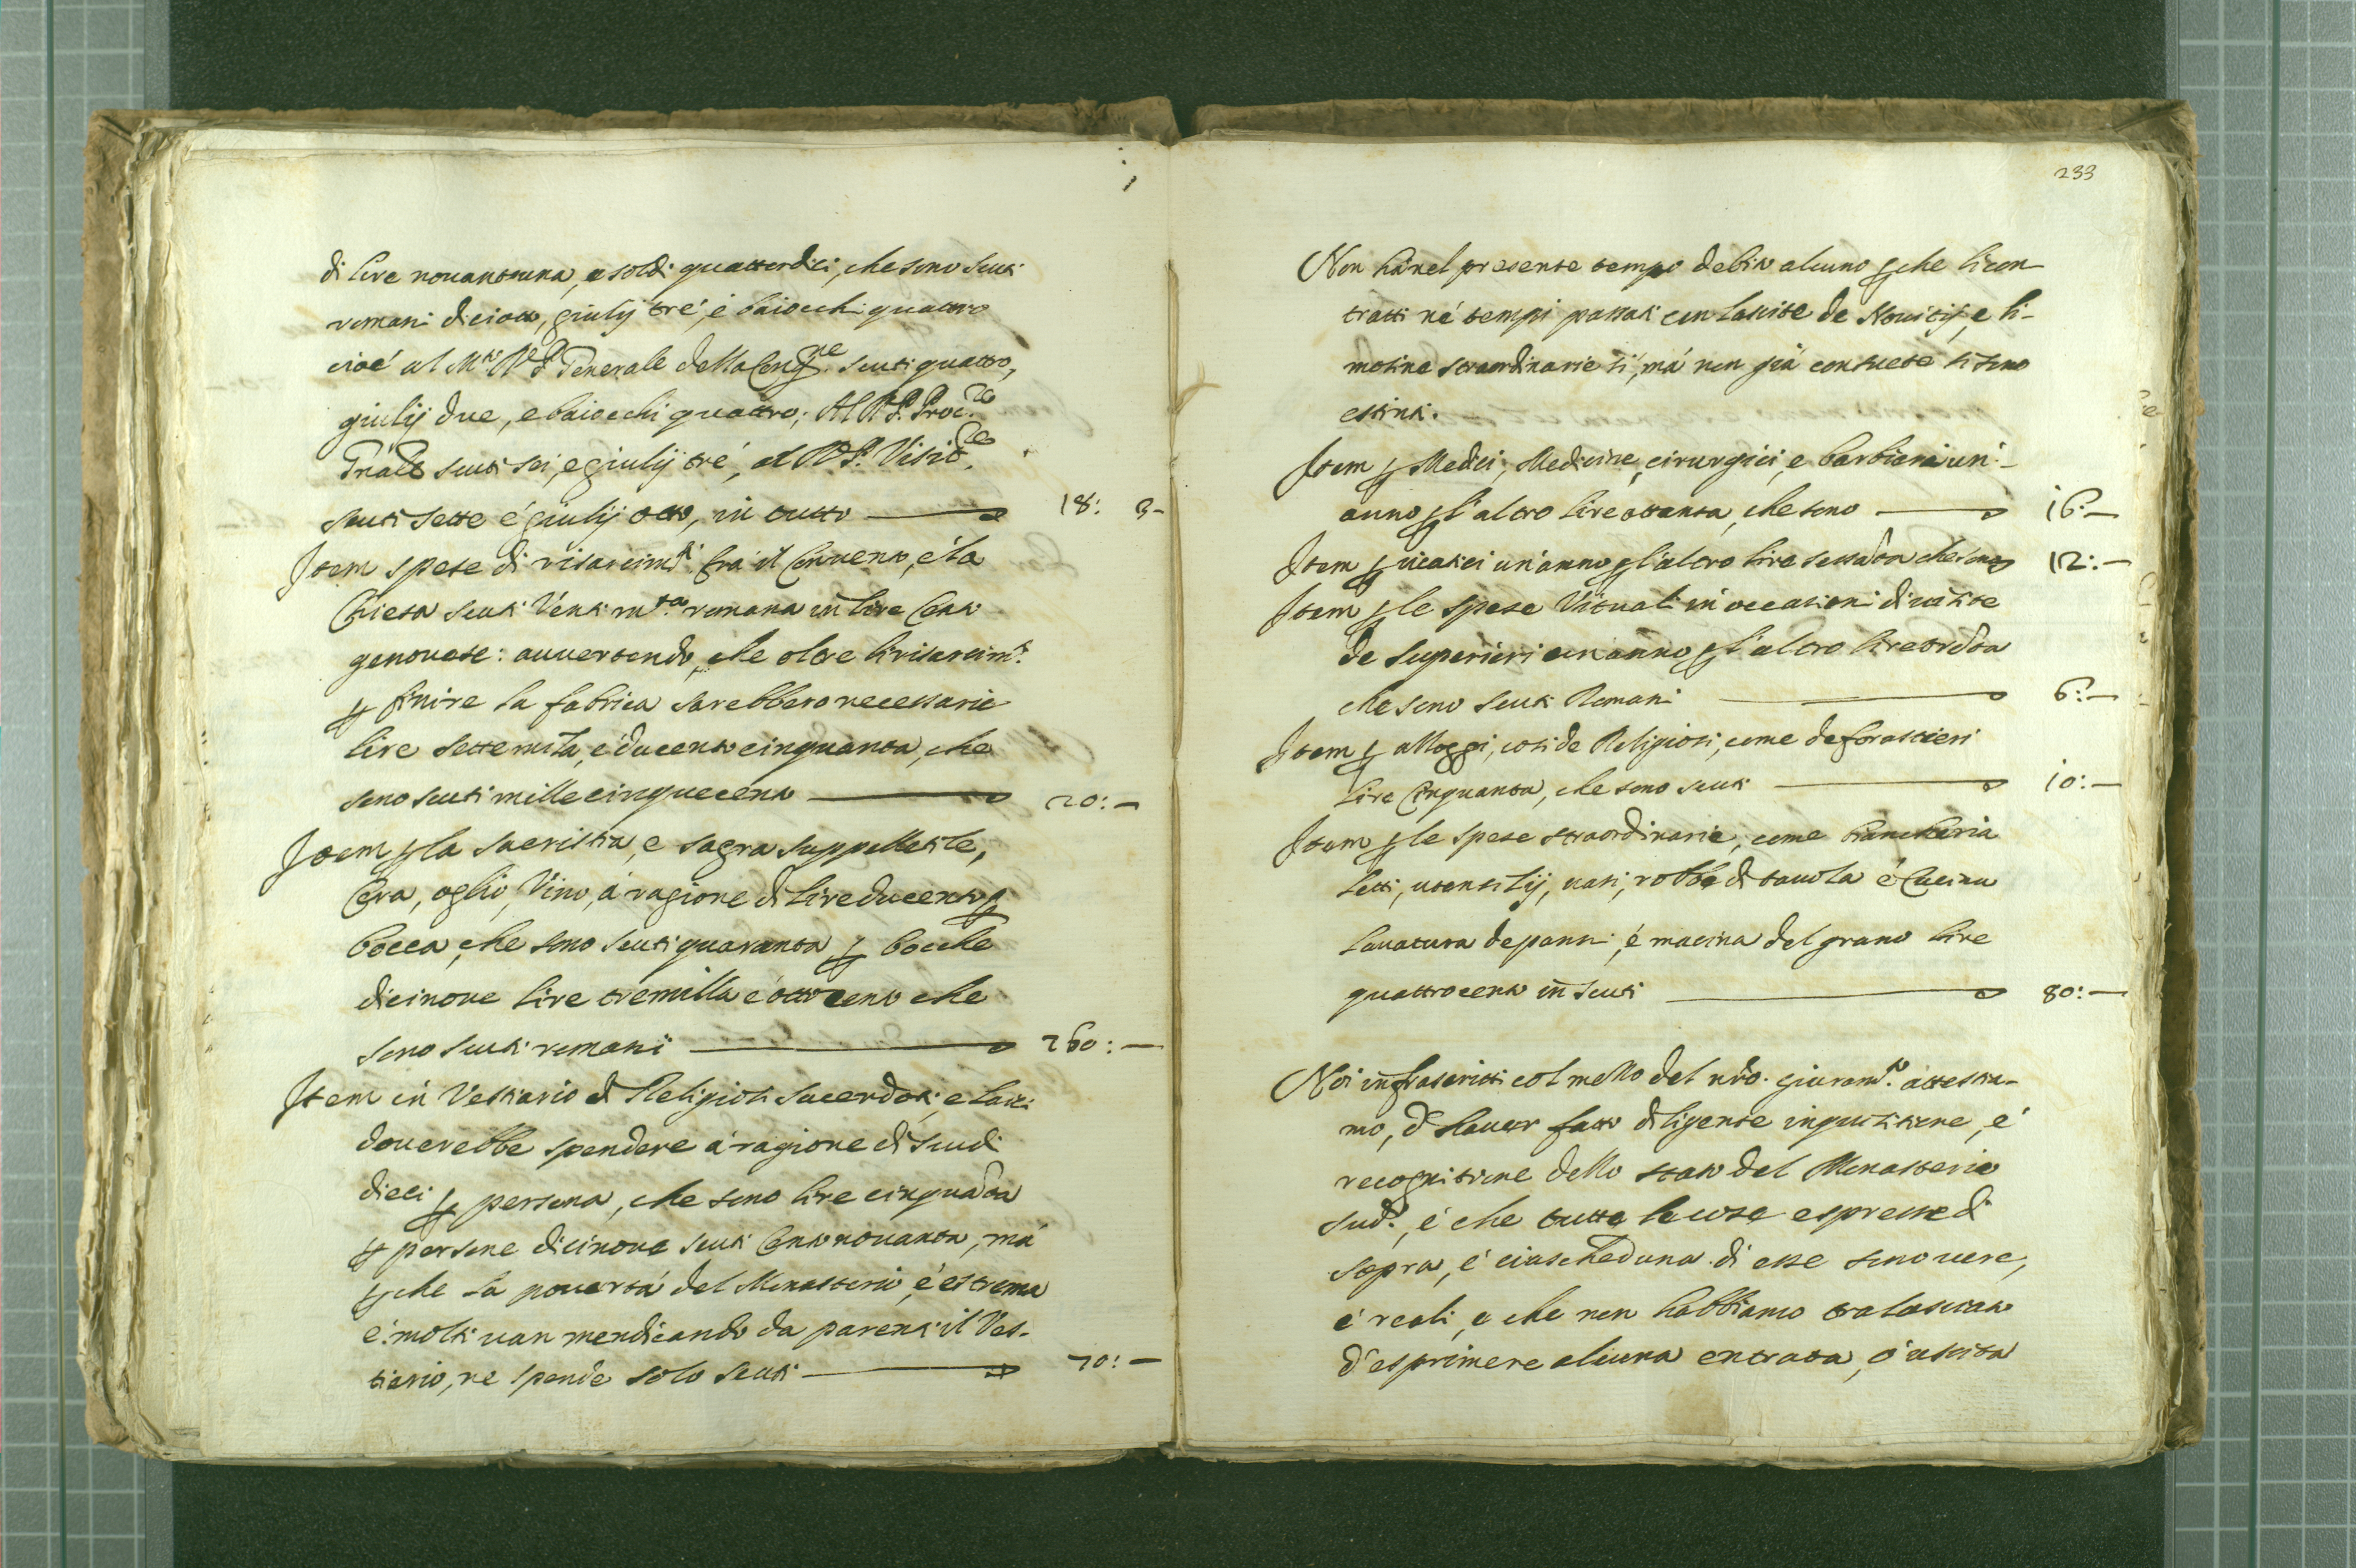 di lire nouantuna, e soldi quattordici, che sono scuti
romani diciotto, giulij tré, é baiocchi quattro
cioé al M.to R. P. Generale della Cong.ne scuti quattro,
giulij due, e baiocchi quattro; Al R. P. Proc.re
Gnãle scuti sei, e giulij tré, al R. P. Visit.re
scuti sette é giulij otto, in tutto 18: 3-
Item spese di risarcim.ti frà il Conuento, é la
Chiesa scuti Venti m.ta romana iñ lire Cento
genouese: auuertendo, che oltre li risarcim.ti
ꝑ finire la fabrica sarebbero necessarie
lire sette mila, é ducento cinquanta, che
sono scuti mille cinquecento 20:-
Item ꝑ la sacristia, e sagra suppelletile,
Cera, oglio, Vino, á ragione di lire ducento ꝑ
bocca, che sono scuti quaranta ꝑ bocche
dicinoue lire tremilla é ottocento che
sono scuti romani 760:-
Item in Vestiario di Religiosi Sacerdoti, e laici
douerebbe spendere á ragione di scudi
dieci ꝑ persona, che sono lire cinquãta
ꝑ persone dicinoue scuti Cento nouanta, má
ꝑche la pouertá del Monasterio é estrema
é molti uan mendicando da parenti il Ves-
tiario, ne spende solo scuti 70:-
233
Non há nel presente tempo debito alcuno ꝑche li con-
tratti né tempi passati con lascite de Nouitij, e li-
mosine straordinarie sì, má non giá consuete si sono
estinti.
Item ꝑ Medici, Medicine, cirurgici, e barbieri un'-
anno ꝑ l'altro lire ottanta, che sono 16:-
Item ꝑ uiatici un'anno ꝑ l'altro lire sessãta che sono 12:-
Item ꝑ le spese Vituali in occasioni di uisite
de Superiori un anno ꝑ l'altro lire trẽta
che sono scuti Romani 6:-
Item ꝑ alloggi, cosi de Religiosi, come de forastieri
lire Cinquanta, che sono scuti 10:-
Item ꝑ le spese straordinarie, come biancheria
letti, utensilij, uasi, robbe di tauola é Cucina
lauatura de panni, é macina del grano lire
quattrocento iñ scuti 80:-
Noi infrascritti col mezzo del nr̃o giuram.to attestia-
mo, d'hauer fatto diligente inquisitione, é
recognitione dello stato del Monasterio
sud.o, é che tutte le cose espresse di
sopra, é ciascheduna di esse sono uere,
é reali, e che non habbiamo tralasciato
d'esprimere alcuna entrata, ó uscita